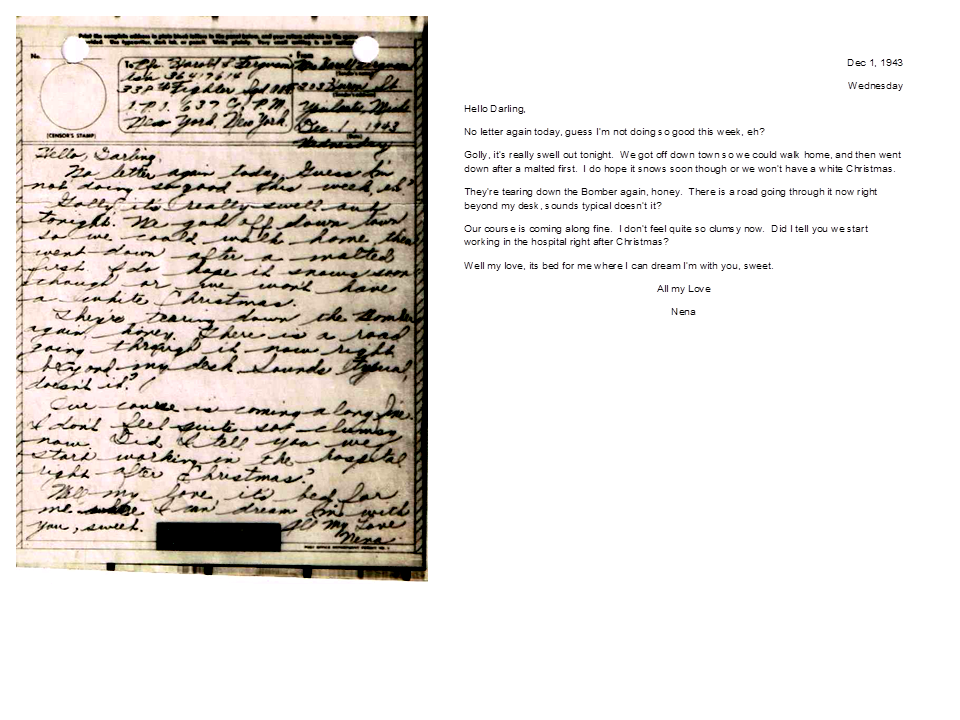 Print the complete address in plain block letters in the panel below, and your return address in the space
No.
To Cpl. Harold L Ferguson
asn 36417614
33 Pth Fighter Sqd
A.P.O. 637 C/o P.M.
New York, New York.
From
Burns St
Mich.
Dec. 1, 1943
(Date)
Wednesday
(CENSOR'S STAMP)
Hello, Darling,
No letter again today, Guess I'm
not doing so good this week, eh?
Golly it's really swell out
tonight. We got off down town
so we could walk home, then
went down after a malted
first. I do hope it snows soon
though or we won't have
a white Christmas.
They're tearing down the Bomber
again, honey. There is a road
going through it now right
beyond my desk. Sounds typical,
doesn't it?
Our course is coming along fine.
I don't feel quite so clumsy
now. Did I tell you we
start working in the hospital
right after Christmas?
Well my love, it's bed for
me where I can dream I'm with
you, sweet.
All My Love
Nena
Dec 1, 1943
Wednesday
Hello Darling,
No letter again today, guess I'm not doing so good this week, eh?
Golly, it's really swell out tonight. We got off down town so we could walk home, and then went
down after a malted first. I do hope it snows soon though or we won't have a white Christmas.
They're tearing down the Bomber again, honey. There is a road going through it now right
beyond my desk, sounds typical doesn't it?
Our course is coming along fine. I don't feel quite so clumsy now. Did I tell you we start
working in the hospital right after Christmas?
Well my love, its bed for me where I can dream I'm with you, sweet.
All my Love
Nena